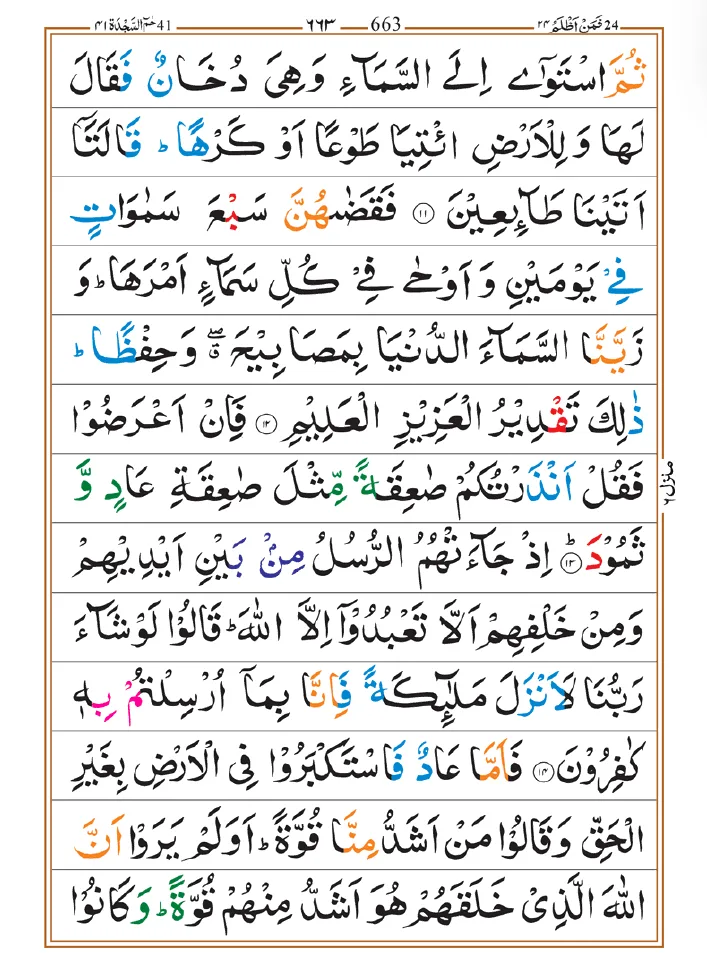 فَمَنْ اَظْلَمُ ٢٤ 24 663 ٦٦٣ حٰمٓ السَّجْدَة ٤١ 41
ثُمَّ اسْتَوٰٓى اِلَى السَّمَآءِ وَهِىَ دُخَانٌ فَقَالَ
لَهَا وَلِلْاَرْضِ ائْتِيَا طَوْعًا اَوْ كَرْهًا ؕ قَالَتَاۤ
اَتَيْنَا طَآئِعِيْنَ ١١ فَقَضٰٮهُنَّ سَبْعَ سَمٰوَاتٍ
فِىْ يَوْمَيْنِ وَاَوْحٰى فِىْ كُلِّ سَمَآءٍ اَمْرَهَا ؕ وَ
زَيَّنَّا السَّمَآءَ الدُّنْيَا بِمَصَابِيْحَ ۖۗ وَحِفْظًا ؕ
ذٰلِكَ تَقْدِيْرُ الْعَزِيْزِ الْعَلِيْمِ ١٢ فَاِنْ اَعْرَضُوْا
فَقُلْ اَنْذَرْتُكُمْ صٰعِقَةً مِّثْلَ صٰعِقَةِ عَادٍ وَّ
ثَمُوْدَ ؕ ١٣ اِذْ جَآءَتْهُمُ الرُّسُلُ مِنْۢ بَيْنِ اَيْدِيْهِمْ
وَمِنْ خَلْفِهِمْ اَلَّا تَعْبُدُوْۤا اِلَّا اللّٰهَ ؕ قَالُوْا لَوْ شَآءَ
رَبُّنَا لَاَنْزَلَ مَلٰٓئِكَةً فَاِنَّا بِمَاۤ اُرْسِلْتُمْ بِهٖ
كٰفِرُوْنَ ١٤ فَاَمَّا عَادٌ فَاسْتَكْبَرُوْا فِى الْاَرْضِ بِغَيْرِ
الْحَقِّ وَقَالُوْا مَنْ اَشَدُّ مِنَّا قُوَّةً ؕ اَوَلَمْ يَرَوْا اَنَّ
اللّٰهَ الَّذِىْ خَلَقَهُمْ هُوَ اَشَدُّ مِنْهُمْ قُوَّةً ؕ وَكَانُوْا
منزل ٦